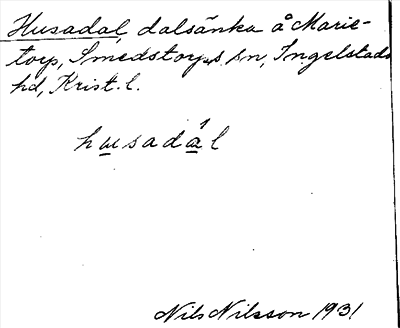 Husadal, dalsänka å Marie-
torp, Smedstorps sn, Ingelstads
hd, Krist. l.
husadál
Nils Nilsson 1931